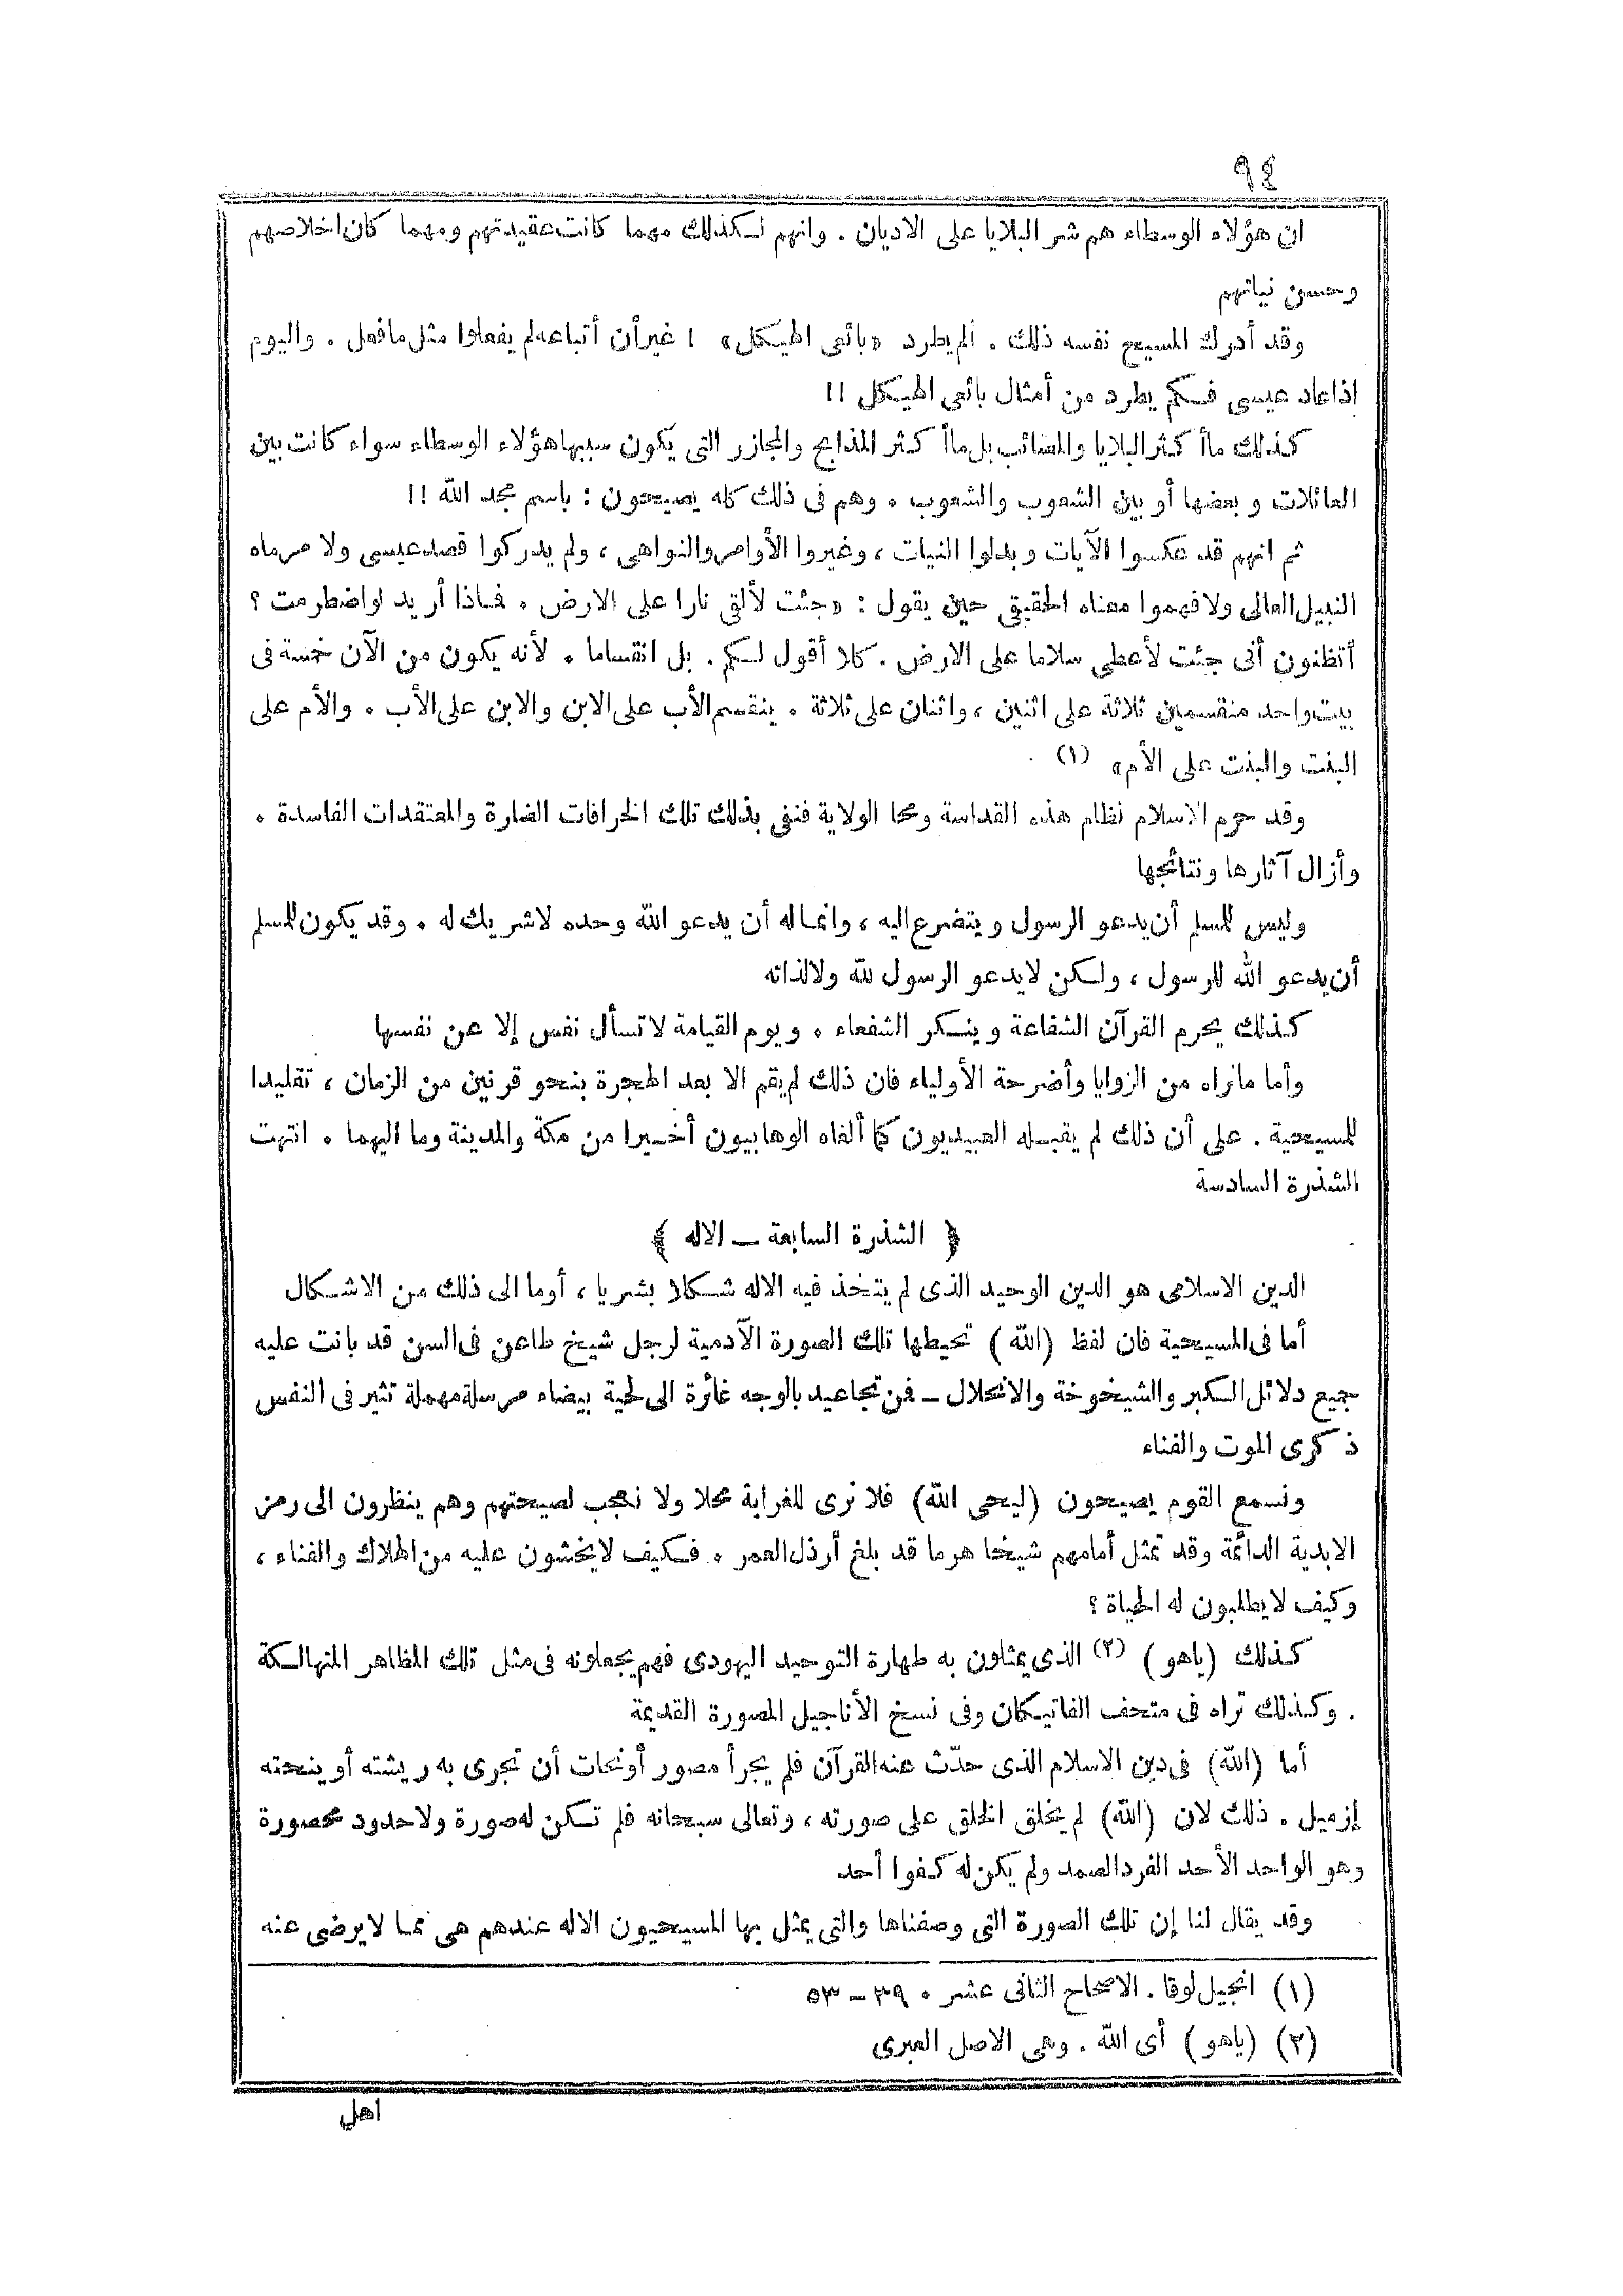 ٩٤
ان هؤلاء الوسطاء هم شر البلايا على الاديان . وانهم لكذلك مهما كانت عقيدتهم ومهما كان اخلاصهم
وحسن نياتهم
وقد أدرك المسيح نفسه ذلك . ألم يطرد «بائعى الهيكل» ! غير أن أتباعه لم يفعلوا مثل مافعل . واليوم
اذا عاد عيسى فكم يطرد من أمثال بائعى الهيكل !!
كذلك ما أكثر البلايا والمصائب بل ما أكثر المذابح والمجازر التى يكون سببها هؤلاء الوسطاء سواء كانت بين
العائلات وبعضها أو بين الشعوب والشعوب . وهم فى ذلك كله يصيحون : باسم مجد الله !!
ثم انهم قد عكسوا الآيات وبدلوا النيات ، وغيروا الأوامر والنواهى ، ولم يدركوا قصد عيسى ولا مرماه
النبيل العالى ولا فهموا معناه الحقيقى حين يقول : «جئت لألقى نارا على الارض . فماذا أريد لو اضطرمت ؟
أتظنون أنى جئت لأعطى سلاما على الارض . كلا أقول لكم . بل انقساما . لأنه يكون من الآن خمسة فى
بيت واحد منقسمين ثلاثة على اثنين ، واثنان على ثلاثة . ينقسم الأب على الابن والابن على الأب . والأم على
البنت والبنت على الأم» (١)
وقد حرم الاسلام نظام هذه القداسة ومحا الولاية فنفى بذلك تلك الخرافات الضارة والمعتقدات الفاسدة .
وأزال آثارها ونتائجها
وليس للمسلم أن يدعو الرسول ويتضرع اليه ، وانما له أن يدعو الله وحده لا شريك له . وقد يكون للمسلم
أن يدعو الله للرسول ، ولكن لا يدعو الرسول لله ولا لذاته
كذلك يحرم القرآن الشفاعة وينكر الشفعاء . ويوم القيامة لا تسأل نفس إلا عن نفسها
وأما مانراه من الزوايا وأضرحة الأولياء فان ذلك لم يقم الا بعد الهجرة بنحو قرنين من الزمان ، تقليدا
للمسيحية . على أن ذلك لم يقبله العبيديون كما ألغاه الوهابيون أخيرا من مكة والمدينة وما اليهما . انتهت
الشذرة السادسة
﴿ الشذرة السابعة ــ الاله ﴾
الدين الاسلامى هو الدين الوحيد الذى لم يتخذ فيه الاله شكلا بشريا ، أو ما الى ذلك من الاشكال
أما فى المسيحية فان لفظ (الله) تحيطها تلك الصورة الآدمية لرجل شيخ طاعن فى السن قد بانت عليه
جميع دلائل الكبر والشيخوخة والانحلال ــ فمن تجاعيد بالوجه غائرة الى لحية بيضاء مرسلة مهملة تثير فى النفس
ذكرى الموت والفناء
ونسمع القوم يصيحون (ليحى الله) فلا نرى للغرابة محلا ولا نعجب لصيحتهم وهم ينظرون الى رمز
الابدية الدائمة وقد تمثل أمامهم شيخا هرما قد بلغ أرذل العمر . فكيف لا يخشون عليه من الهلاك والفناء ،
وكيف لا يطلبون له الحياة ؟
كذلك (ياهو) (٢) الذى يمثلون به طهارة التوحيد اليهودى فهم يجعلونه فى مثل تلك المظاهر المتهالكة
. وكذلك تراه فى متحف الفاتيكان وفى نسخ الأناجيل المصورة القديمة
أما (الله) فى دين الاسلام الذى حدّث عنه القرآن فلم يجرأ مصور أو نحات أن تجرى به ريشته أو ينحته
إزميل . ذلك لان (الله) لم يخلق الخلق على صورته ، وتعالى سبحانه فلم تكن له صورة ولا حدود محصورة
وهو الواحد الأحد الفرد الصمد ولم يكن له كفوا أحد
وقد يقال لنا إن تلك الصورة التى وصفناها والتى يمثل بها المسيحيون الاله عندهم هى مما لا يرضى عنه
(١) انجيل لوقا . الاصحاح الثانى عشر . ٣٩ ــ ٥٣
(٢) (ياهو) أى الله . وهى الاصل العبرى
اهل